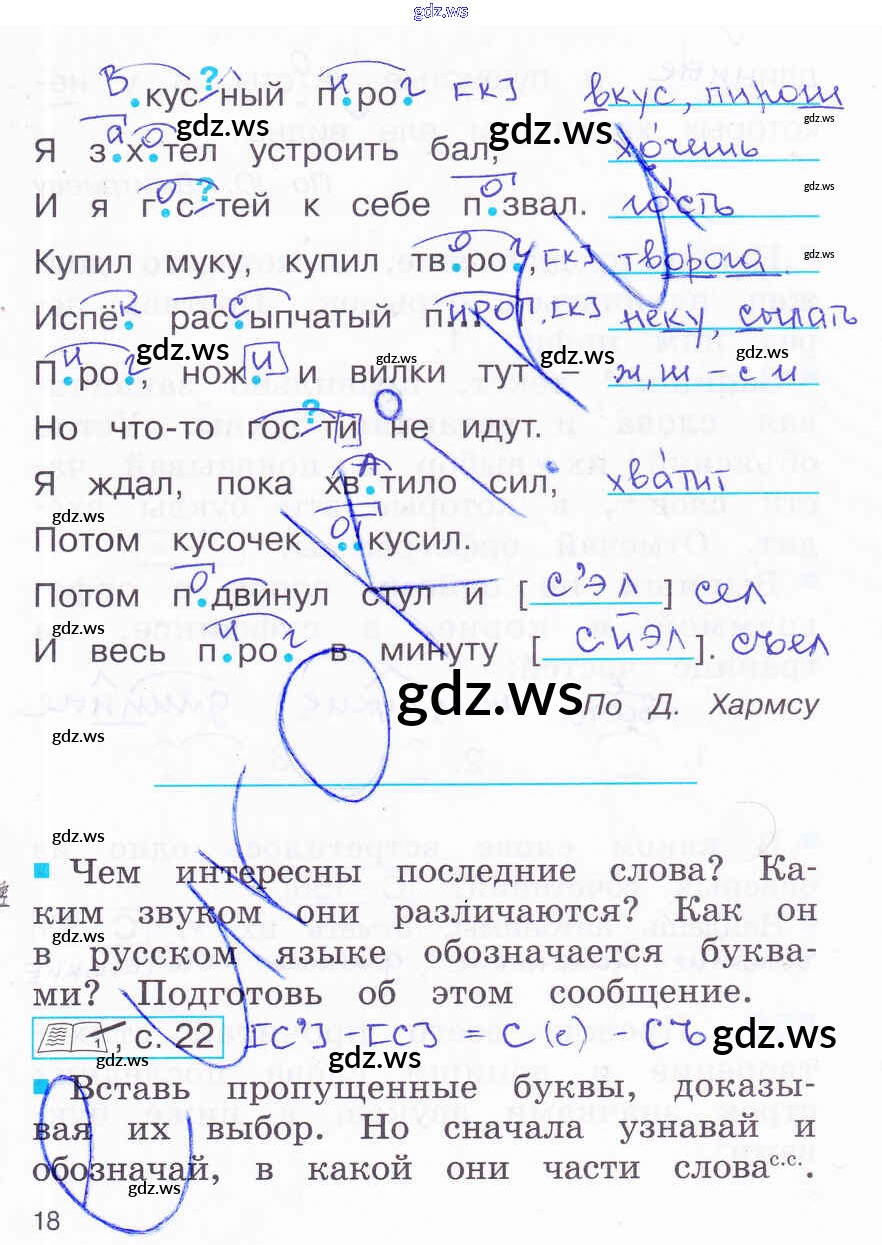 gdz.ws
Вкус?ный пирог [к] вкус, пироги
Я захотел устроить бал, хочешь
И я гос?тей к себе позвал. гость
Купил муку, купил творог, [к] творога
Испёк рассыпчатый пирог. [к] пеку, сыпать
Пирог, ножи и вилки тут – ж, ш - с и
Но что-то гос?ти не идут.
Я ждал, пока хватило сил, хватит
Потом кусочек откусил.
Потом подвинул стул и [с’эл] сел
И весь пирог в минуту [сйэл]. съел
По Д. Хармсу
Чем интересны последние слова? Ка-
ким звуком они различаются? Как он
в русском языке обозначается буква-
ми? Подготовь об этом сообщение.
, с. 22 [с’] - [с] с (е) съ
Вставь пропущенные буквы, доказы-
вая их выбор. Но сначала узнавай и
обозначай, в какой они части слова с.с.
18